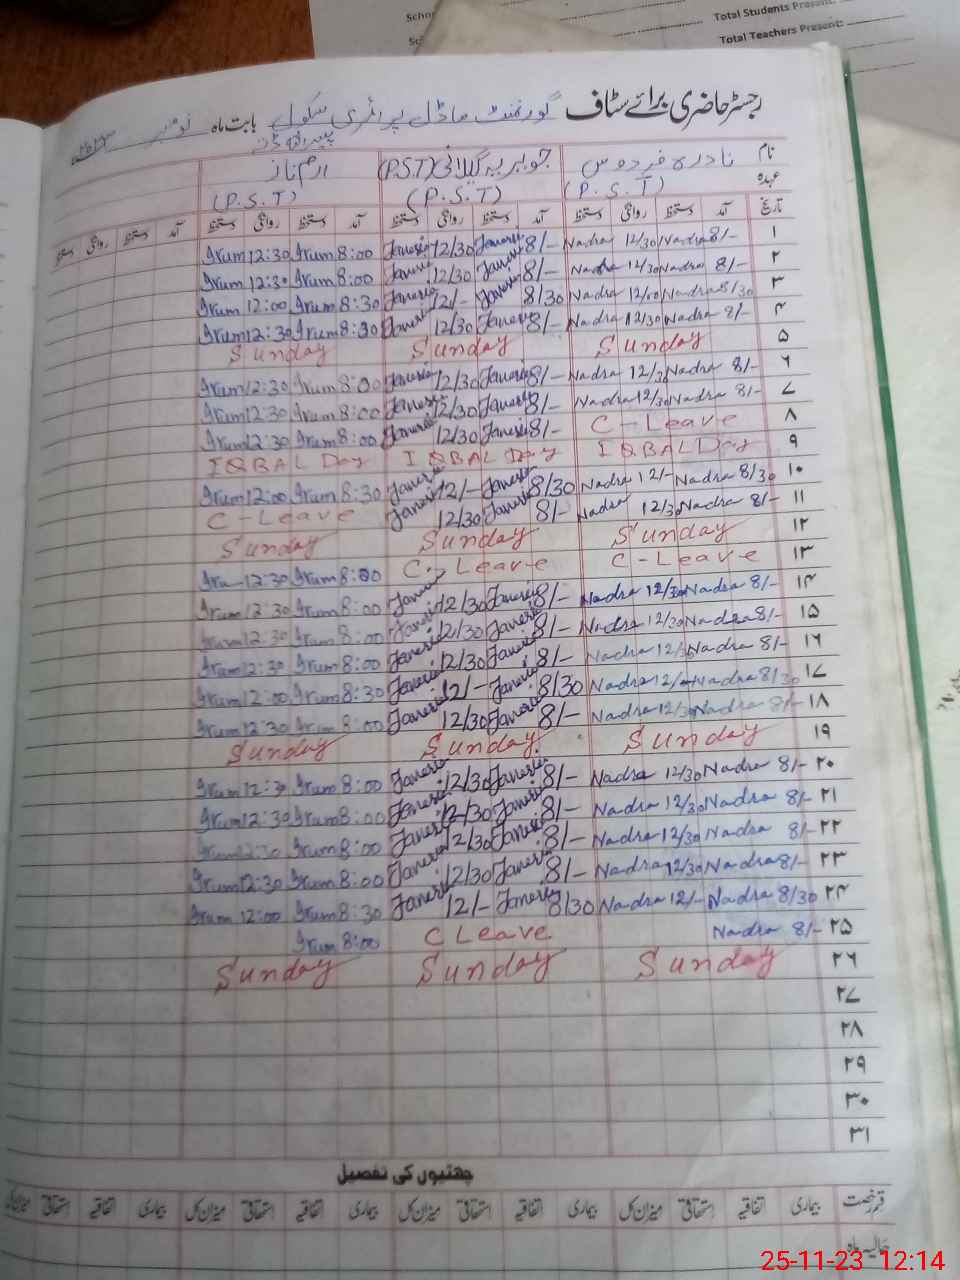 Total Students Present:
Total Teachers Present:
رجسٹر حاضری برائے سٹاف گورنمنٹ ماڈل پرائمری سکول بابت ماہ نومبر
نام نادرہ فردوس جویریہ گیلانی (P.S.T) ارم ناز
عہدہ (P.S.T) (P.S.T) (P.S.T)
تاریخ آمد دستخط روانگی دستخط آمد دستخط روانگی دستخط آمد دستخط روانگی دستخط آمد دستخط روانگی دستخط
Irum 12:30 Irum 8:00 12/30 8/- Nadra 12/30 Nadra 8/- ۱
Irum 12:30 Irum 8:00 12/30 8/- Nadra 12/30 Nadra 8/- ۲
Irum 12:00 Irum 8:30 12/- 8/30 Nadra 12/00 Nadra 8/30 ۳
Irum 12:30 Irum 8:30 12/30 8/- Nadra 12/30 Nadra 8/- ۴
Sunday Sunday Sunday ۵
Irum 12:30 Irum 8:00 12/30 8/- Nadra 12/30 Nadra 8/- ۶
Irum 12:30 Irum 8:00 12/30 8/- Nadra 12/30 Nadra 8/- ۷
Irum 12:30 Irum 8:00 12/30 8/- C-Leave ۸
IQBAL Day IQBAL Day IQBAL Day ۹
Irum 12:00 Irum 8:30 12/- 8/30 Nadra 12/- Nadra 8/30 ۱۰
C-Leave 12/30 8/- Nadra 12/30 Nadra 8/- ۱۱
Sunday Sunday Sunday ۱۲
Iru 12:30 Irum 8:00 C-Leave C-Leave ۱۳
Irum 12:30 Irum 8:00 12/30 8/- Nadra 12/30 Nadra 8/- ۱۴
Irum 12:30 Irum 8:00 12/30 8/- Nadra 12/30 Nadra 8/- ۱۵
Irum 12:30 Irum 8:00 12/30 8/- Nadra 12/30 Nadra 8/- ۱۶
Irum 12:00 Irum 8:30 12/- 8/30 Nadra 12/- Nadra 8/30 ۱۷
Irum 12:30 Irum 8:00 12/30 8/- Nadra 12/30 Nadra 8/- ۱۸
Sunday Sunday Sunday ۱۹
Irum 12:30 Irum 8:00 12/30 8/- Nadra 12/30 Nadra 8/- ۲۰
Irum 12:30 Irum 8:00 12/30 8/- Nadra 12/30 Nadra 8/- ۲۱
Irum 12:30 Irum 8:00 12/30 8/- Nadra 12/30 Nadra 8/- ۲۲
Irum 12:30 Irum 8:00 12/30 8/- Nadra 12/30 Nadra 8/- ۲۳
Irum 12:00 Irum 8:30 12/- 8/30 Nadra 12/- Nadra 8/30 ۲۴
Irum 8:00 C Leave Nadra 8/- ۲۵
Sunday Sunday Sunday ۲۶
۲۷
۲۸
۲۹
۳۰
۳۱
چھٹیوں کی تفصیل
قسم رخصت بیماری اتفاقیہ استحقاقی میزان کل بیماری اتفاقیہ استحقاقی میزان کل بیماری اتفاقیہ استحقاقی میزان کل بیماری اتفاقیہ استحقاقی میزان کل
حالیہ ماہ
25-11-23 12:14